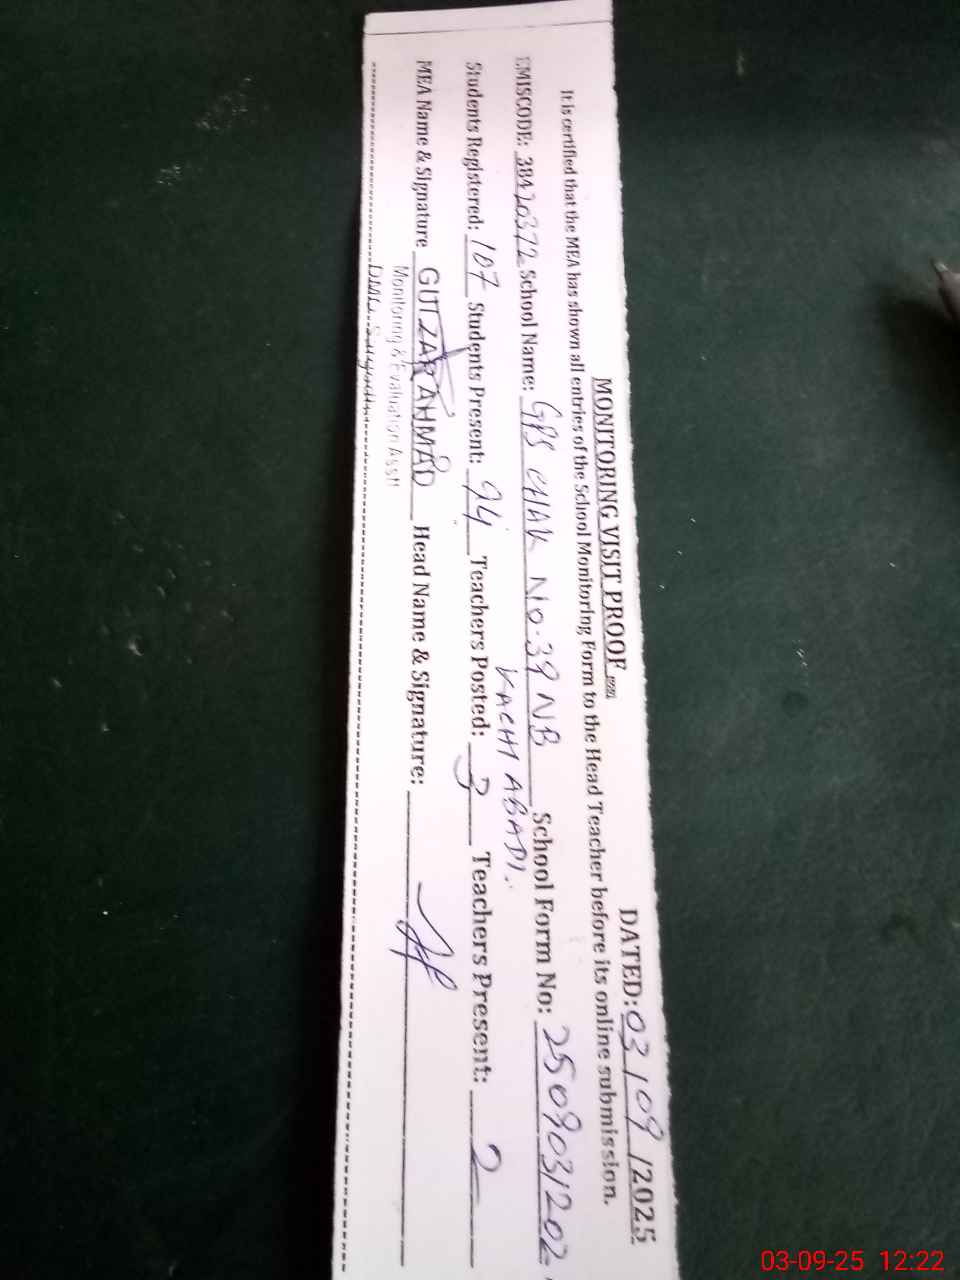 MONITORING VISIT PROOF DATED: 03/09/2025
It is certified that the MEA has shown all entries of the School Monitoring Form to the Head Teacher before its online submission.
EMISCODE: 38420372 School Name: GPS CHAK No. 39 NB School Form No: 2509031202
KACHI ABADI.
Students Registered: 107 Students Present: 94 Teachers Posted: 3 Teachers Present: 2
MEA Name & Signature GULZAR AHMAD Head Name & Signature:
Monitoring & Evaluation Asstt
DMO Sargodha
03-09-25 12:22